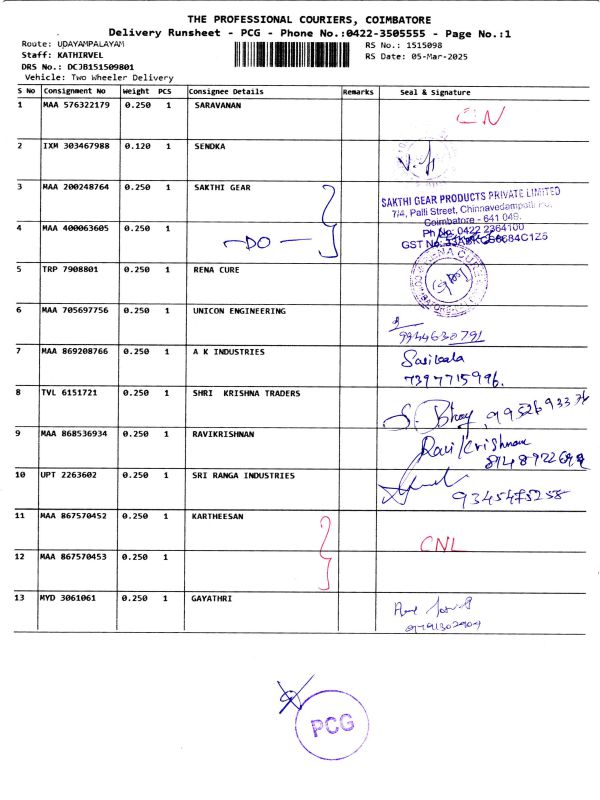 THE PROFESSIONAL COURIERS, COIMBATORE
Delivery Runsheet - PCG - Phone No.:0422-3505555 - Page No.:1
Route: UDAYAMPALAYAM
RS No.: 1515098
Staff: KATHIRVEL
RS Date: 05-Mar-2025
DRS No.: DCJB151509801
Vehicle: Two Wheeler Delivery
S No Consignment No Weight PCS Consignee Details Remarks Seal & Signature
1 MAA 576322179 0.250 1 SARAVANAN
2 IXM 303467988 0.120 1 SENDKA
3 MAA 200248764 0.250 1 SAKTHI GEAR
SAKTHI GEAR PRODUCTS PRIVATE LIMITED
7/4, Palli Street, Chinnavedampatti
Coimbatore - 641 049.
4 MAA 400063605 0.250 1 -DO-
Ph No: 0422 2364100
GST No:
5 TRP 7908801 0.250 1 RENA CURE
6 MAA 705697756 0.250 1 UNICON ENGINEERING
9944630791
7 MAA 869208766 0.250 1 A K INDUSTRIES
Sasikala
7397715996.
8 TVL 6151721 0.250 1 SHRI KRISHNA TRADERS
9 MAA 868536934 0.250 1 RAVIKRISHNAN
Ravi Krishnan
10 UPT 2263602 0.250 1 SRI RANGA INDUSTRIES
9345475258
11 MAA 867570452 0.250 1 KARTHEESAN
CNL
12 MAA 867570453 0.250 1
13 MYD 3061061 0.250 1 GAYATHRI
PCG